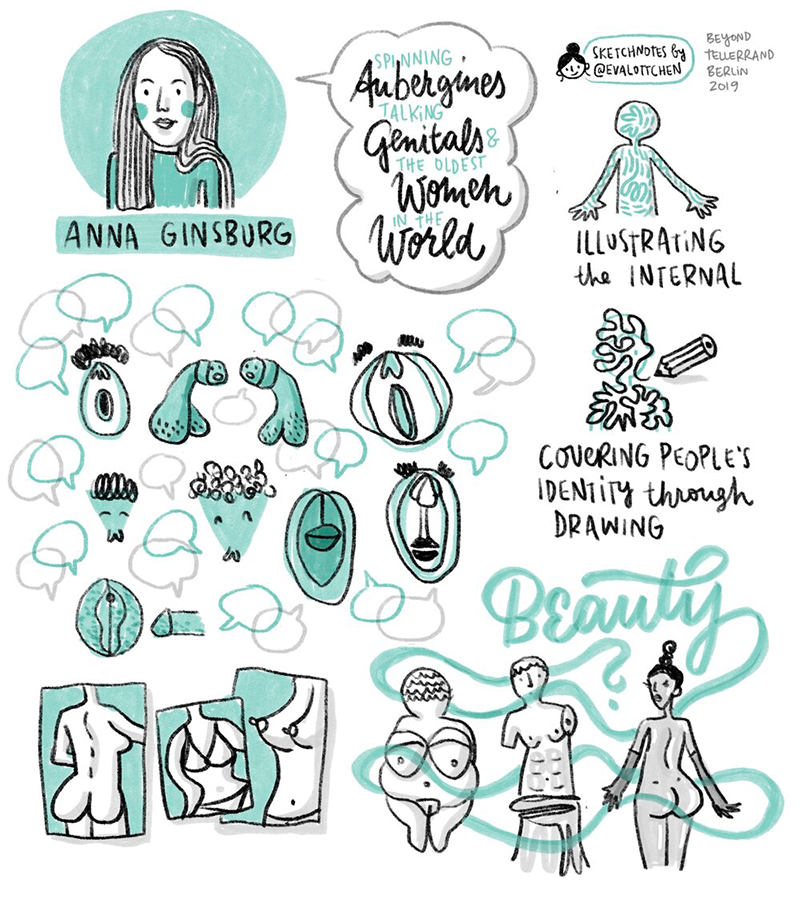 ANNA GINSBURG
SPINNING
Aubergines
TALKING
Genitals &
THE OLDEST
Women
IN THE
World
SKETCHNOTES by
@EVALOTTCHEN
BEYOND
TELLERRAND
BERLIN
2019
ILLUSTRATING
the INTERNAL
COVERING PEOPLE'S
IDENTITY through
DRAWING
Beauty
?